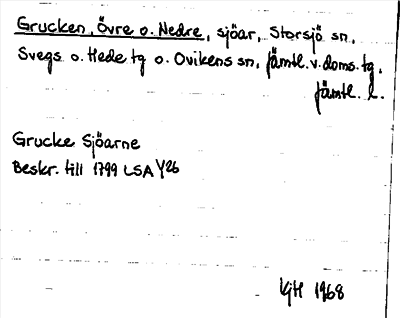 Grucken, Övre o. Nedre, sjöar, Storsjö sn,
Svegs o. Hede tg o. Ovikens sn, Jämtl. v. doms. tg,
Jämtl. l.
Grucke Sjöarne
Beskr. till 1799 LSA Y26
KjH 1968